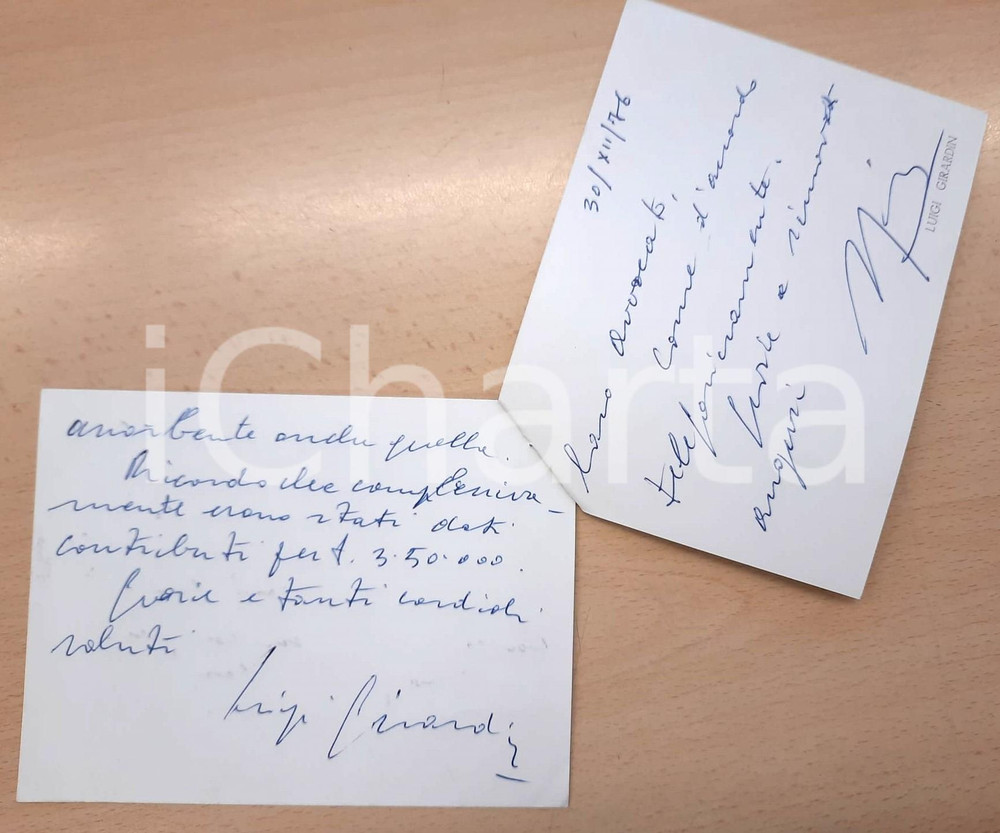 anche quella.
Ricordo che complessiva-
mente erano stati dati
contributi per £. 3.50.000.
Grazie e tanti cordiali
saluti
Luigi Girardin
30/XII/76
Caro avvocato,
come d'accordo
telefonicamente.
Grazie e rinnovati
auguri
LUIGI GIRARDIN
iCharta